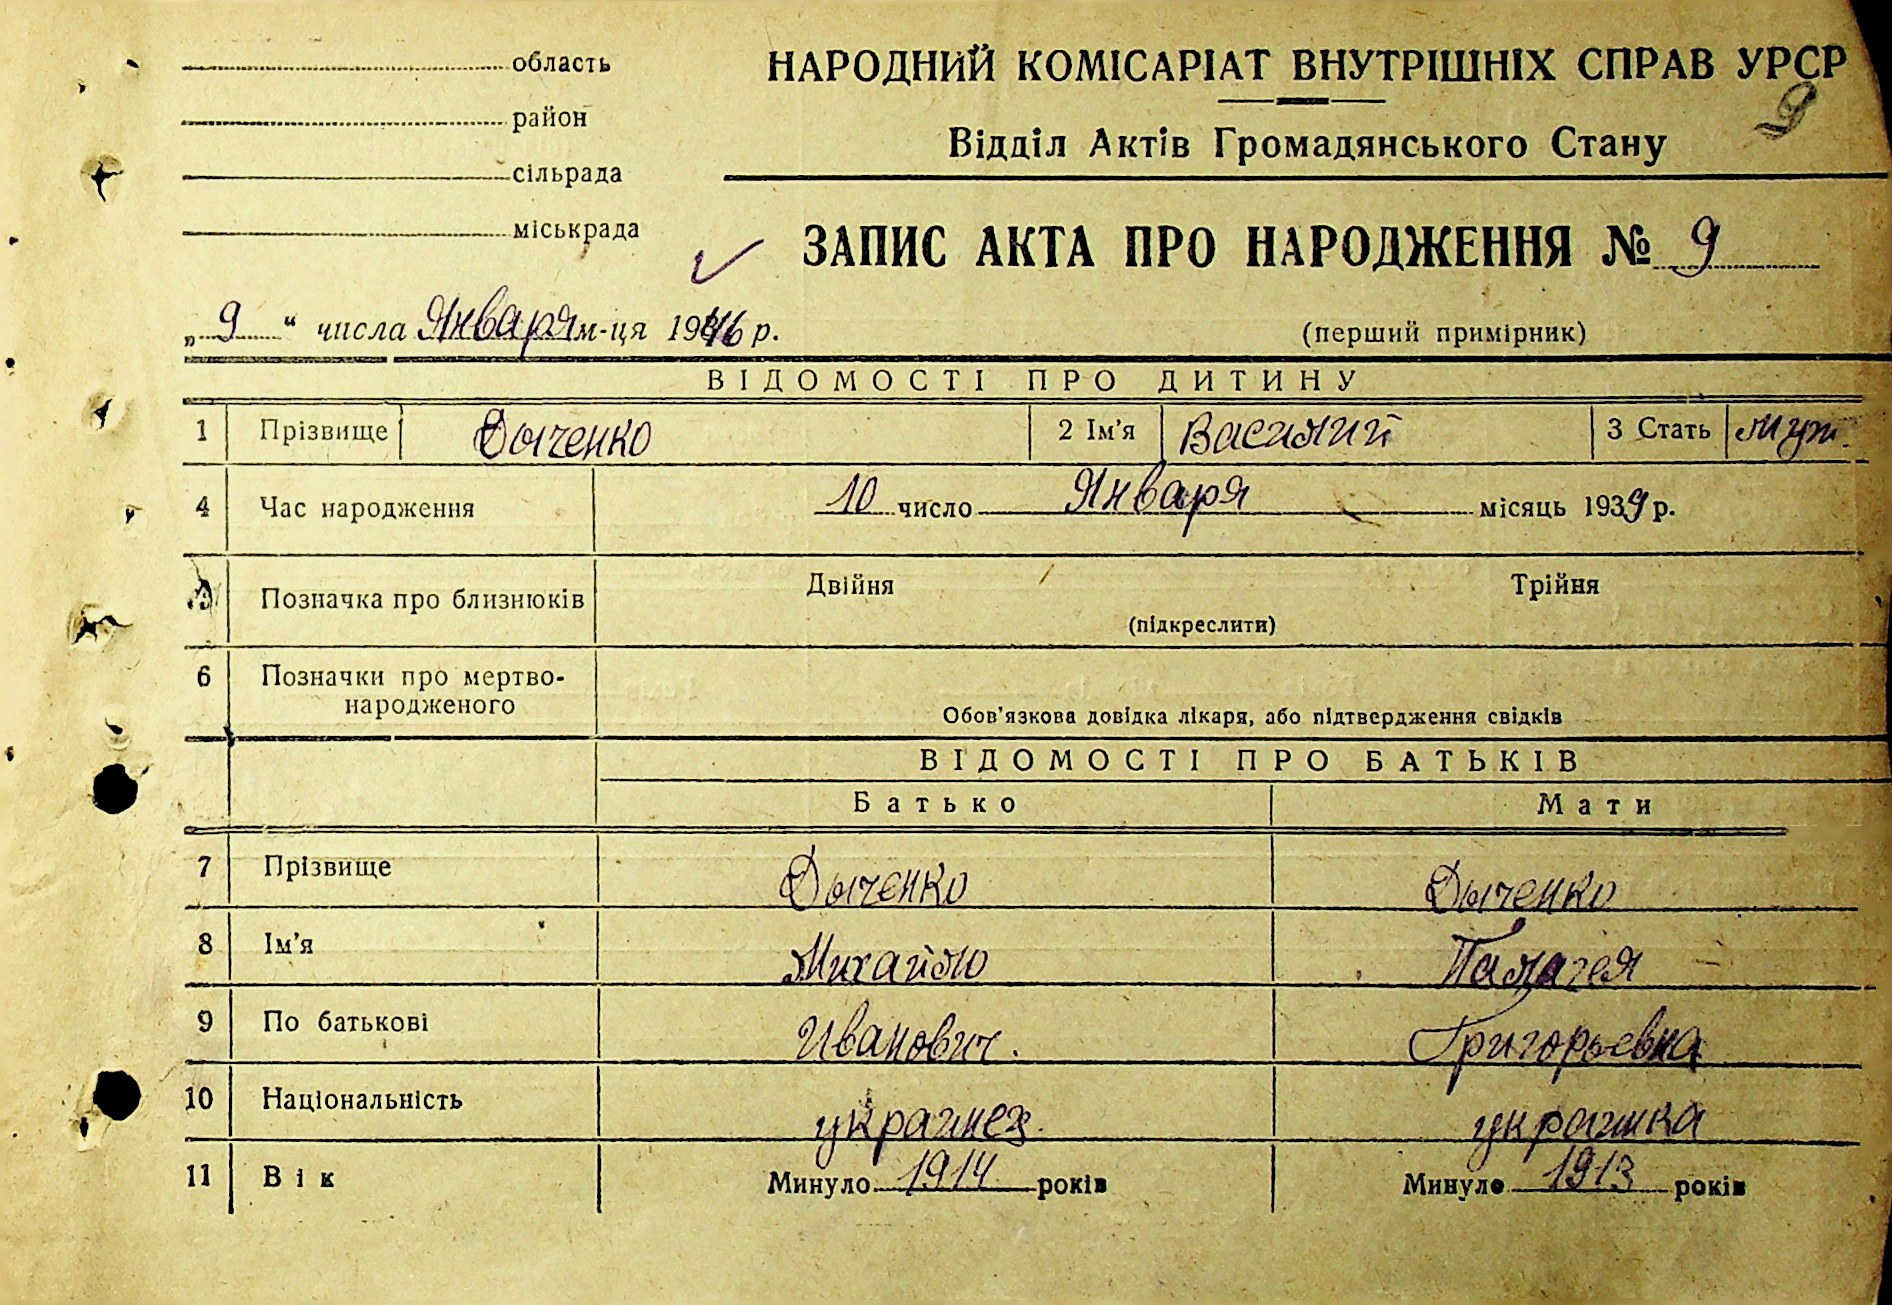 область
район
сільрада
міськрада
НАРОДНИЙ КОМІСАРІАТ ВНУТРІШНІХ СПРАВ УРСР
9
Відділ Актів Громадянського Стану
ЗАПИС АКТА ПРО НАРОДЖЕННЯ № 9
„ 9 “ числа Января м-ця 1946 р.
(перший примірник)
ВІДОМОСТІ ПРО ДИТИНУ
1 Прізвище Дыченко 2 Ім'я Василий 3 Стать муж.
4 Час народження 10 число Января місяць 1939 р.
Позначка про близнюків Двійня Трійня
(підкреслити)
6 Позначки про мертво-
народженого
Обов'язкова довідка лікаря, або підтвердження свідків
ВІДОМОСТІ ПРО БАТЬКІВ
Батько Мати
7 Прізвище Дыченко Дыченко
8 Ім'я Михайло Палагея
9 По батькові Иванович. Григорьевна
10 Національність украинец. украинка
11 Вік Минуло 1914 років Минуло 1913 років